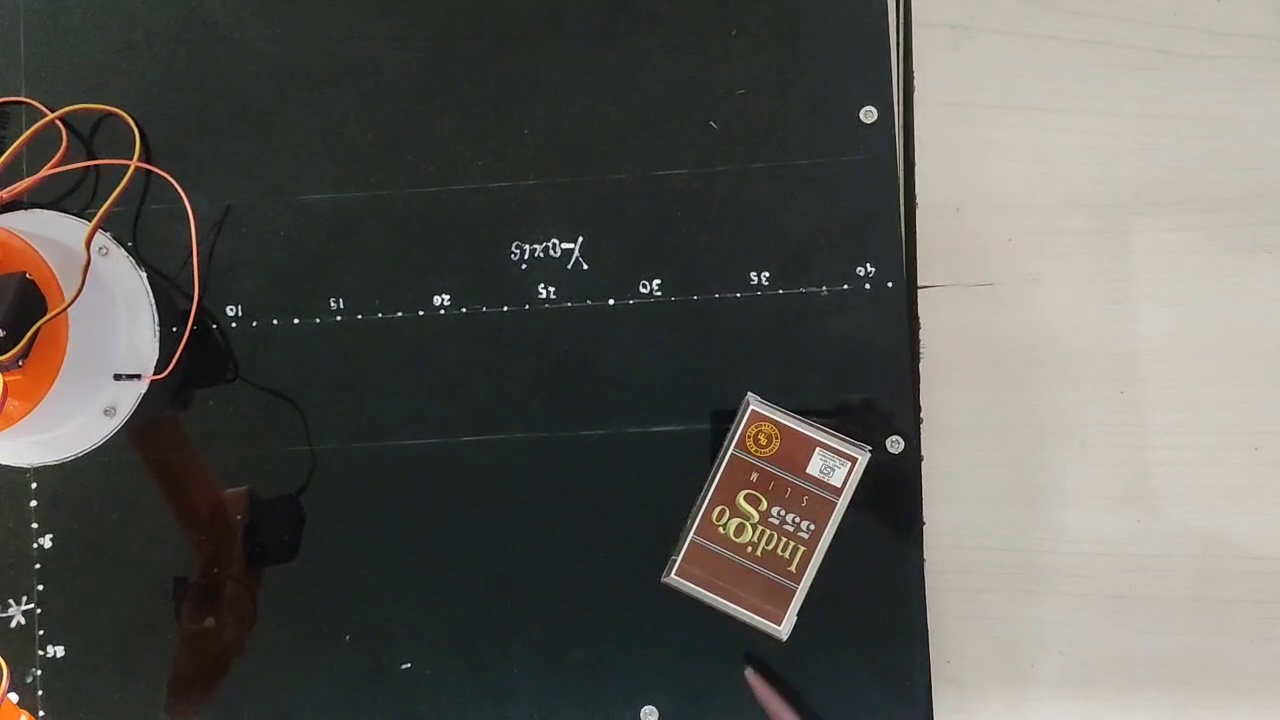 Y-axis
10 15 20 25 30 35 40
Indigo
555
SLIM